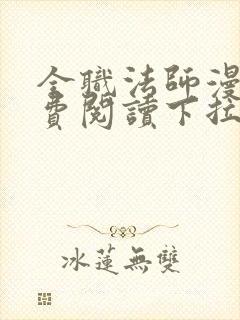 全職法師漫
費閱讀下拉
冰蓮無雙